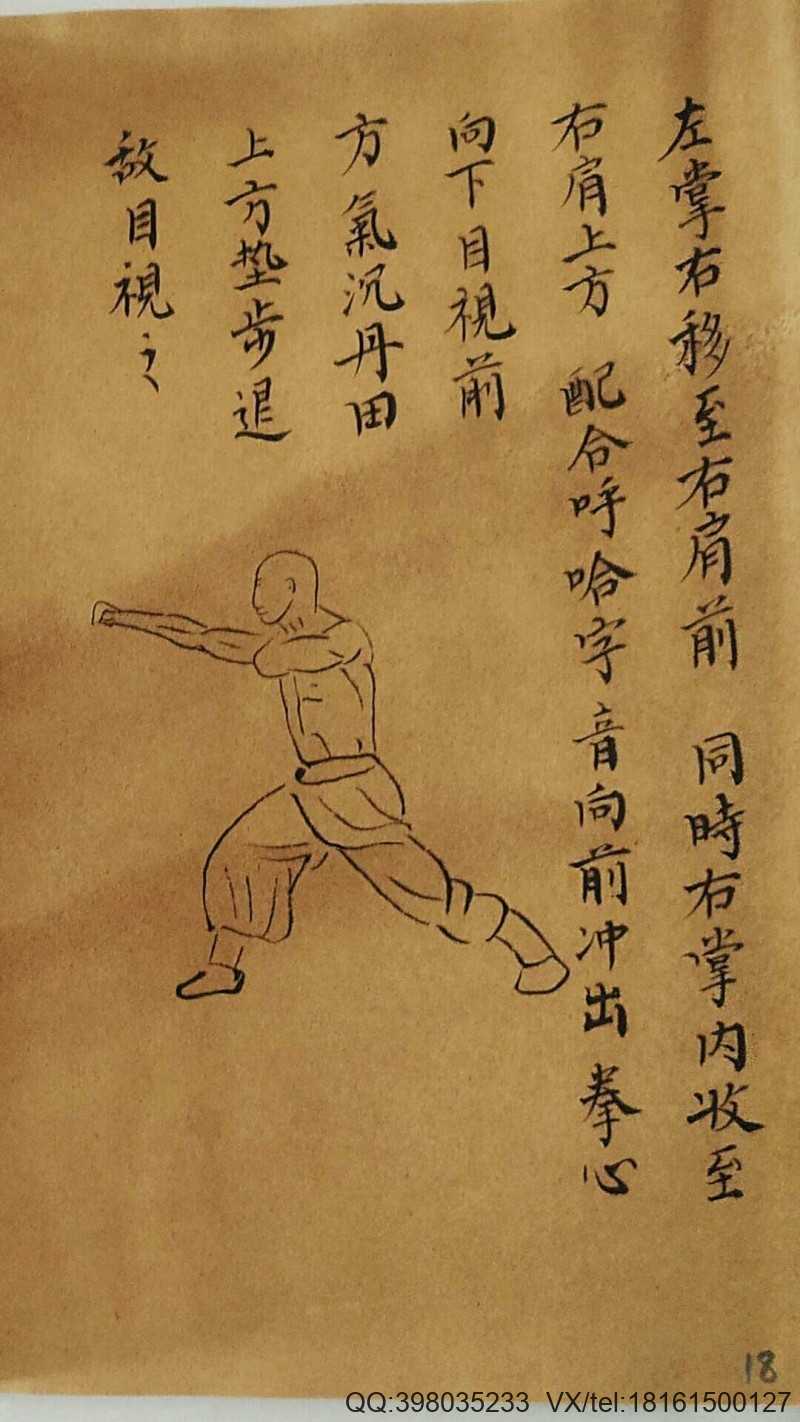 左掌右移至右肩前 同時右掌内收至
右肩上方 配合呼哈字音向前冲出拳心
向下目視前
方氣沉丹田
上方垫步退
敌目視之
18
QQ:398035233 VX/tel:18161500127